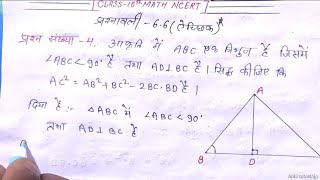 [CLASS-10th MATH NCERT]
प्रश्नावली - 6.6 (ऐच्छिक)*
प्रश्न संख्या-4. आकृति में ABC एक त्रिभुज है जिसमें
∠ABC < 90° है तथा AD⊥BC है। सिद्ध कीजिए कि
AC² = AB² + BC² - 2BC·BD है।
दिया है:- △ABC में ∠ABC < 90°
तथा AD⊥BC है
A
B
D